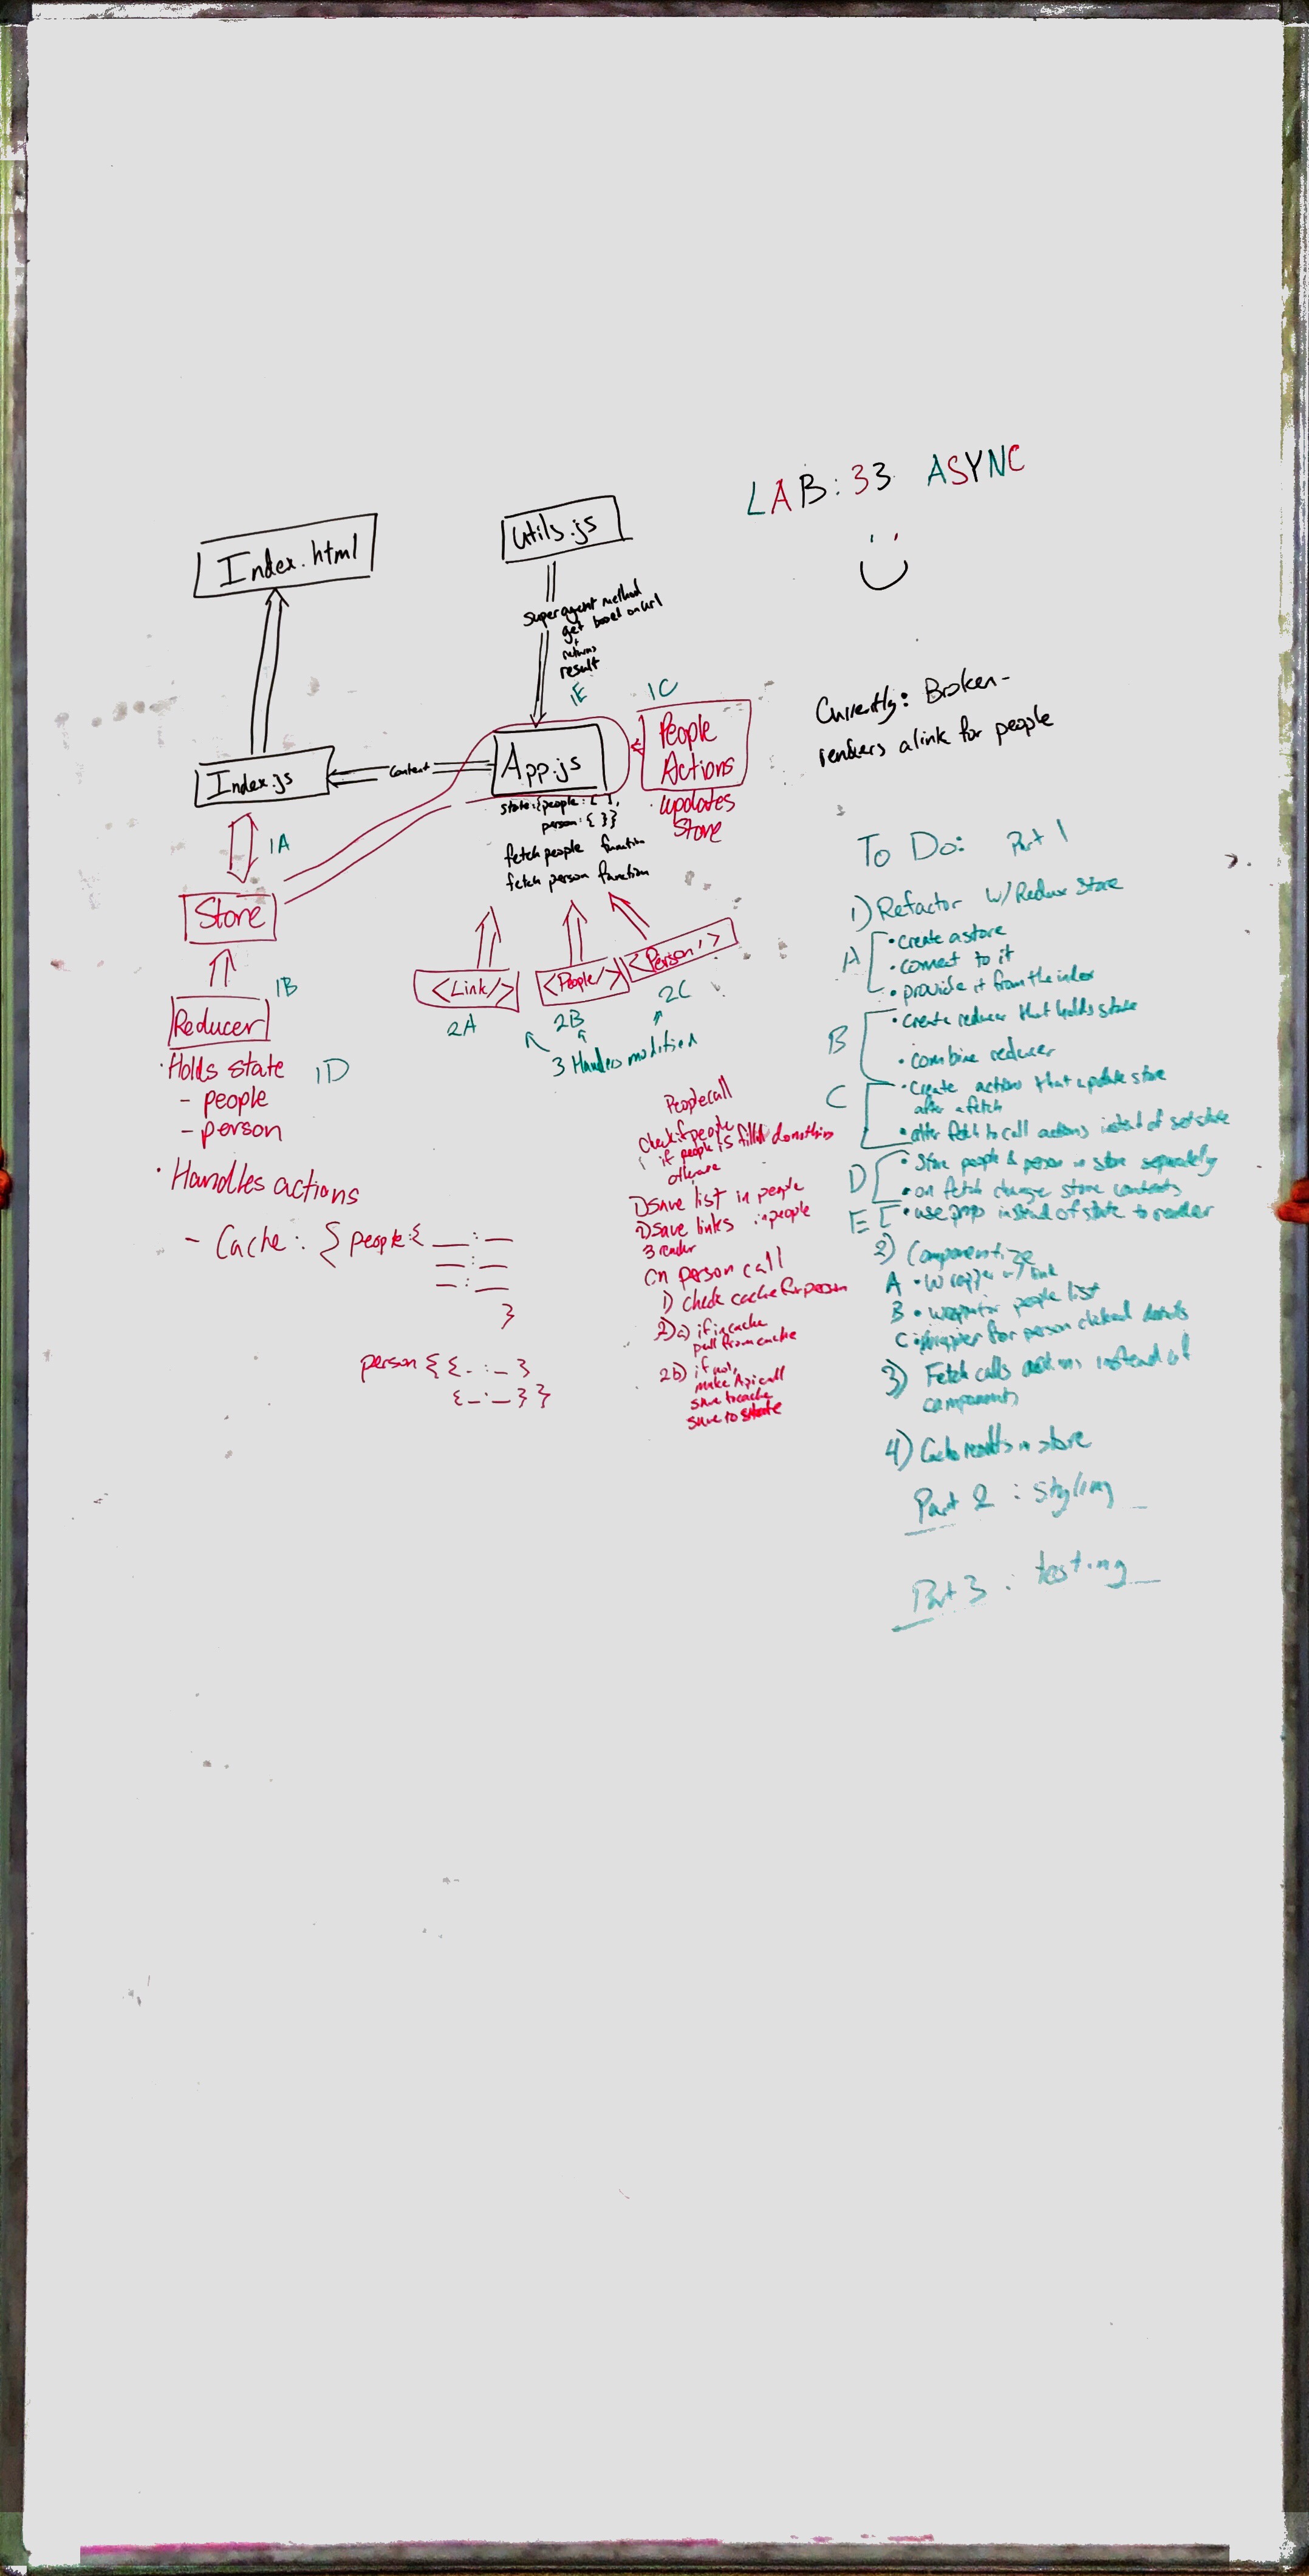 LAB: 33 ASYNC
Index.html
Utils.js
Super agent method
get based on url
+
returns
result
1E
1C
People
Actions
updates
Store
Index.js
Content
App.js
state:{people:[ ],
person:{ }}
fetch people function
fetch person function
1A
Store
1B
Reducer
<Link/>
<People/>
<Person/>
2A
2B
2C
3 Handlers modified
• Holds state
1D
- people
- person
• Handles actions
- Cache: { people:{ __:__
__:__
__:__
}
person { {_:_ }
{_:_} }
People call
check if people
if people is filled do nothing
otherwise
1) save list in people
2) save links in people
3 render
On person call
1) check cache for person
2) a) if in cache
pull from cache
2b) if not,
make Api call
save to cache
save to state
Currently: Broken-
renders a link for people
To Do: Part 1
1) Refactor w/ Redux Store
A
• create a store
• connect to it
• provide it from the index
B
• create reducer that holds state
• combine reducer
C
• Create actions that update store
after a fetch
• alter fetch to call actions instead of setstate
D
• Store people & person in store separately
• on fetch change store contents
E
• use props instead of state to render
2) Componentize
A • Wrapper w/ link
B • wrapper for people list
C • wrapper for person clicked details
3) Fetch calls actions instead of
components
4) Cache results in store
Part 2 : styling
Part 3 : testing